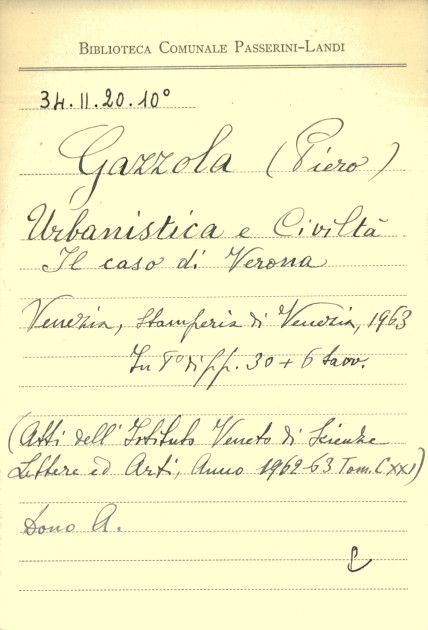 BIBLIOTECA COMUNALE PASSERINI-LANDI
34.II.20.10°
Gazzola (Piero)
Urbanistica e Civiltà
Il caso di Verona
Venezia, Stamperia di Venezia, 1963
In 8° di pp. 30 + 6 tavv.
(Atti dell'Istituto Veneto di Scienze
Lettere ed Arti, Anno 1962-63 Tom. CXXI)
Dono A.